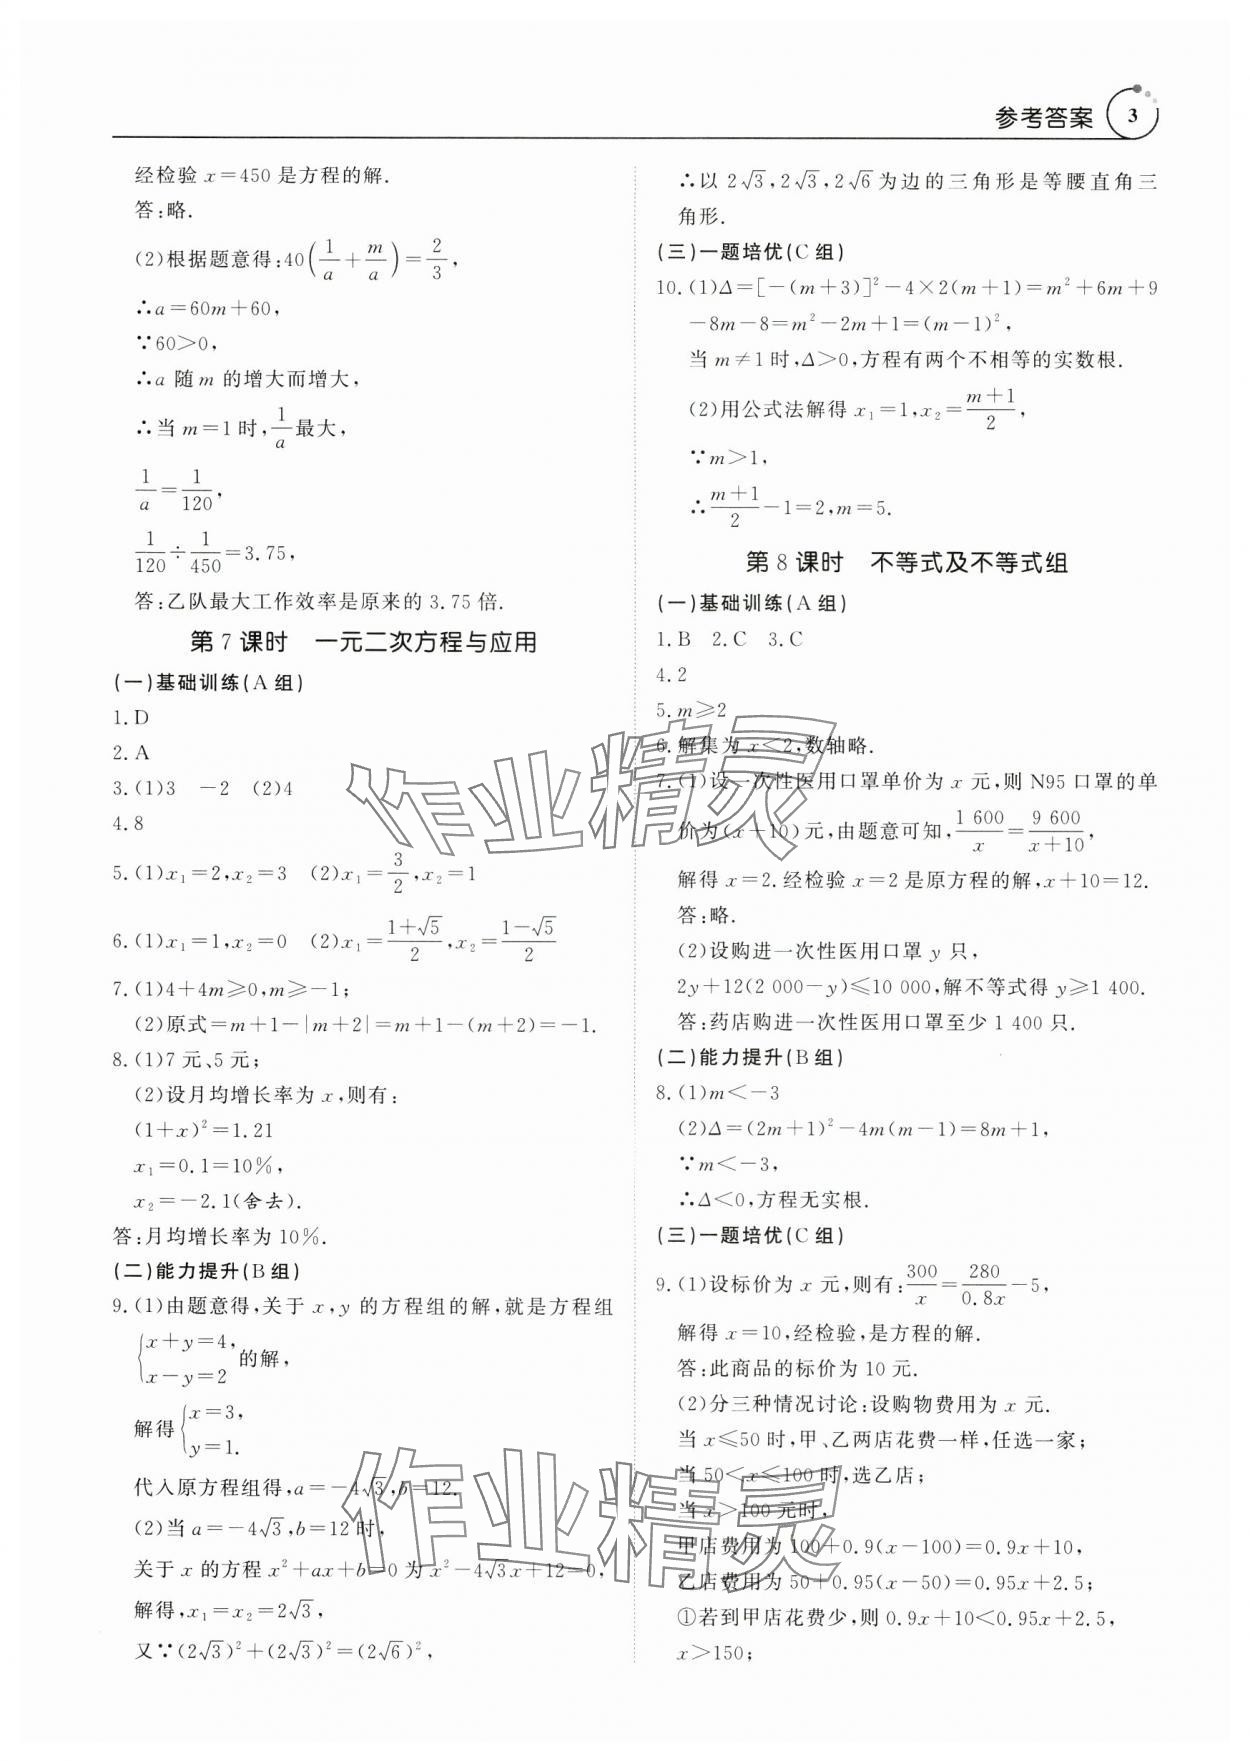 参考答案 3
经检验 x=450 是方程的解.
答:略.
(2)根据题意得:40(1/a+m/a)=2/3,
∴a=60m+60,
∵60>0,
∴a 随 m 的增大而增大,
∴当 m=1 时,1/a最大,
1/a=1/120,
1/120÷1/450=3.75,
答:乙队最大工作效率是原来的 3.75 倍.
第 7 课时 一元二次方程与应用
(一)基础训练(A 组)
1.D
2.A
3.(1)3 -2 (2)4
4.8
5.(1)x₁=2,x₂=3 (2)x₁=3/2,x₂=1
6.(1)x₁=1,x₂=0 (2)x₁=(1+√5)/2,x₂=(1-√5)/2
7.(1)4+4m≥0,m≥-1;
(2)原式=m+1-|m+2|=m+1-(m+2)=-1.
8.(1)7 元、5 元;
(2)设月均增长率为 x,则有:
(1+x)²=1.21
x₁=0.1=10%,
x₂=-2.1(舍去).
答:月均增长率为 10%.
(二)能力提升(B 组)
9.(1)由题意得,关于 x,y 的方程组的解,就是方程组
{x+y=4,
x-y=2 的解,
解得{x=3,
y=1.
代入原方程组得,a=-4√3,b=12.
(2)当 a=-4√3,b=12 时,
关于 x 的方程 x²+ax+b=0 为 x²-4√3x+12=0,
解得,x₁=x₂=2√3,
又∵(2√3)²+(2√3)²=(2√6)²,
∴以 2√3,2√3,2√6 为边的三角形是等腰直角三
角形.
(三)一题培优(C 组)
10.(1)Δ=[-(m+3)]²-4×2(m+1)=m²+6m+9
-8m-8=m²-2m+1=(m-1)²,
当 m≠1 时,Δ>0,方程有两个不相等的实数根.
(2)用公式法解得 x₁=1,x₂=(m+1)/2,
∵m>1,
∴(m+1)/2-1=2,m=5.
第 8 课时 不等式及不等式组
(一)基础训练(A 组)
1.B 2.C 3.C
4.2
5.m≥2
6.解集为 x<2,数轴略.
7.(1)设一次性医用口罩单价为 x 元,则 N95 口罩的单
价为(x+10)元,由题意可知,1 600/x=9 600/(x+10),
解得 x=2.经检验 x=2 是原方程的解,x+10=12.
答:略.
(2)设购进一次性医用口罩 y 只,
2y+12(2 000-y)≤10 000,解不等式得 y≥1 400.
答:药店购进一次性医用口罩至少 1 400 只.
(二)能力提升(B 组)
8.(1)m<-3
(2)Δ=(2m+1)²-4m(m-1)=8m+1,
∵m<-3,
∴Δ<0,方程无实根.
(三)一题培优(C 组)
9.(1)设标价为 x 元,则有:300/x=280/0.8x-5,
解得 x=10,经检验,是方程的解.
答:此商品的标价为 10 元.
(2)分三种情况讨论:设购物费用为 x 元.
当 x≤50 时,甲、乙两店花费一样,任选一家;
当 50<x≤100 时,选乙店;
当 x>100 元时,
甲店费用为 100+0.9(x-100)=0.9x+10,
乙店费用为 50+0.95(x-50)=0.95x+2.5;
①若到甲店花费少,则 0.9x+10<0.95x+2.5,
x>150;
作业精灵
作业精灵